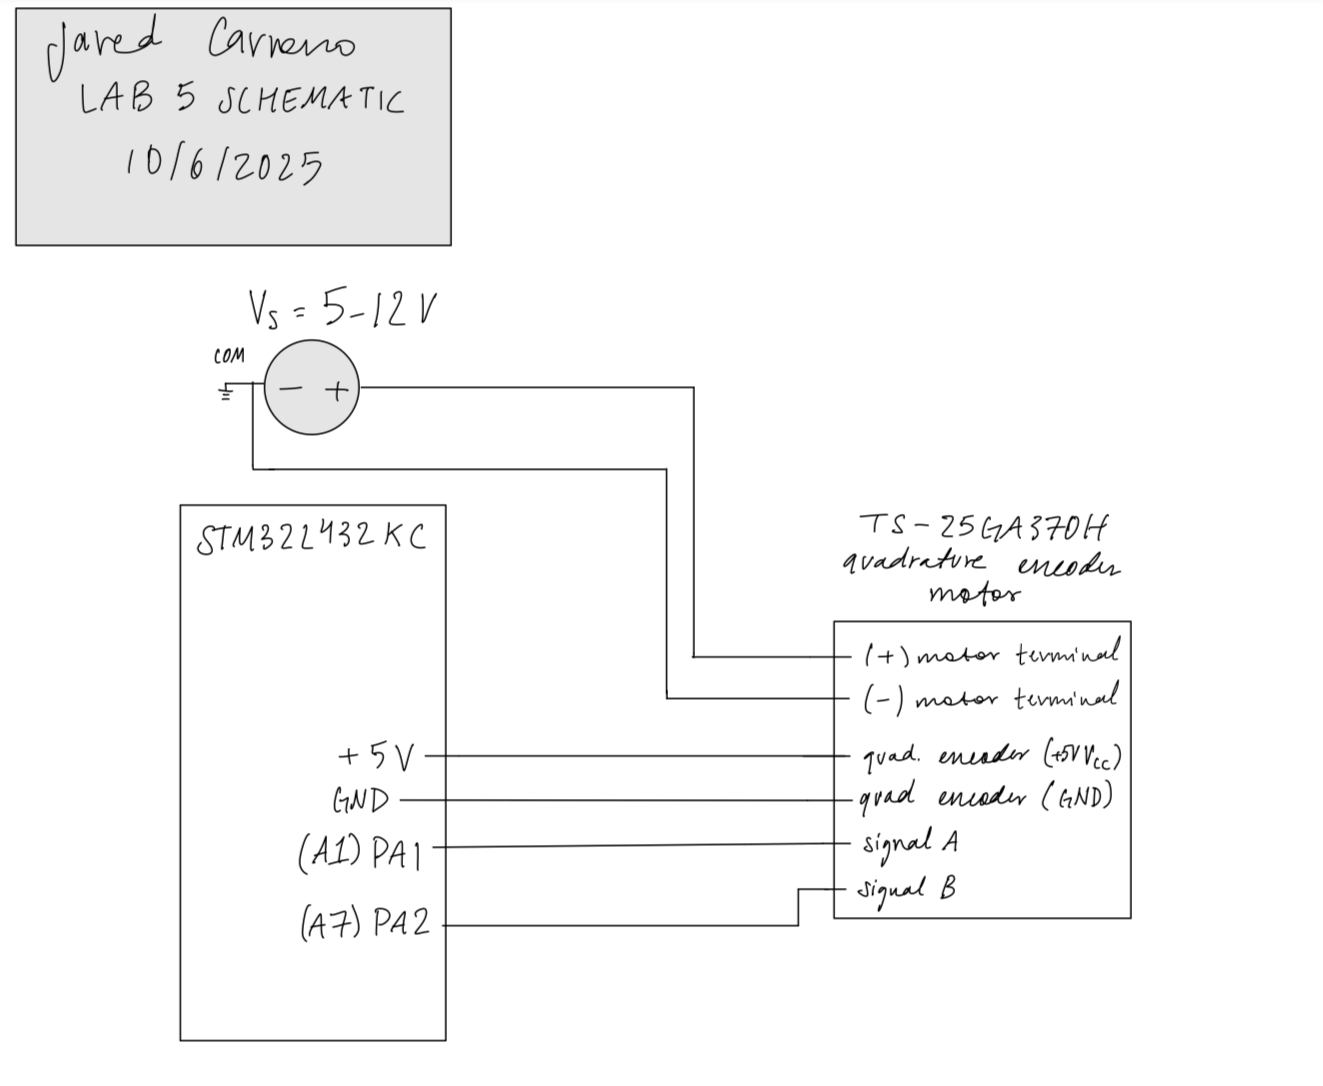 Jared Carreno
LAB 5 SCHEMATIC
10/6/2025
Vs = 5-12V
COM
- +
STM32L432KC
+5V
GND
(A1) PA1
(A7) PA2
TS-25GA370H
quadrature encoder
motor
(+) motor terminal
(-) motor terminal
quad. encoder (+5V Vcc)
quad encoder (GND)
signal A
signal B